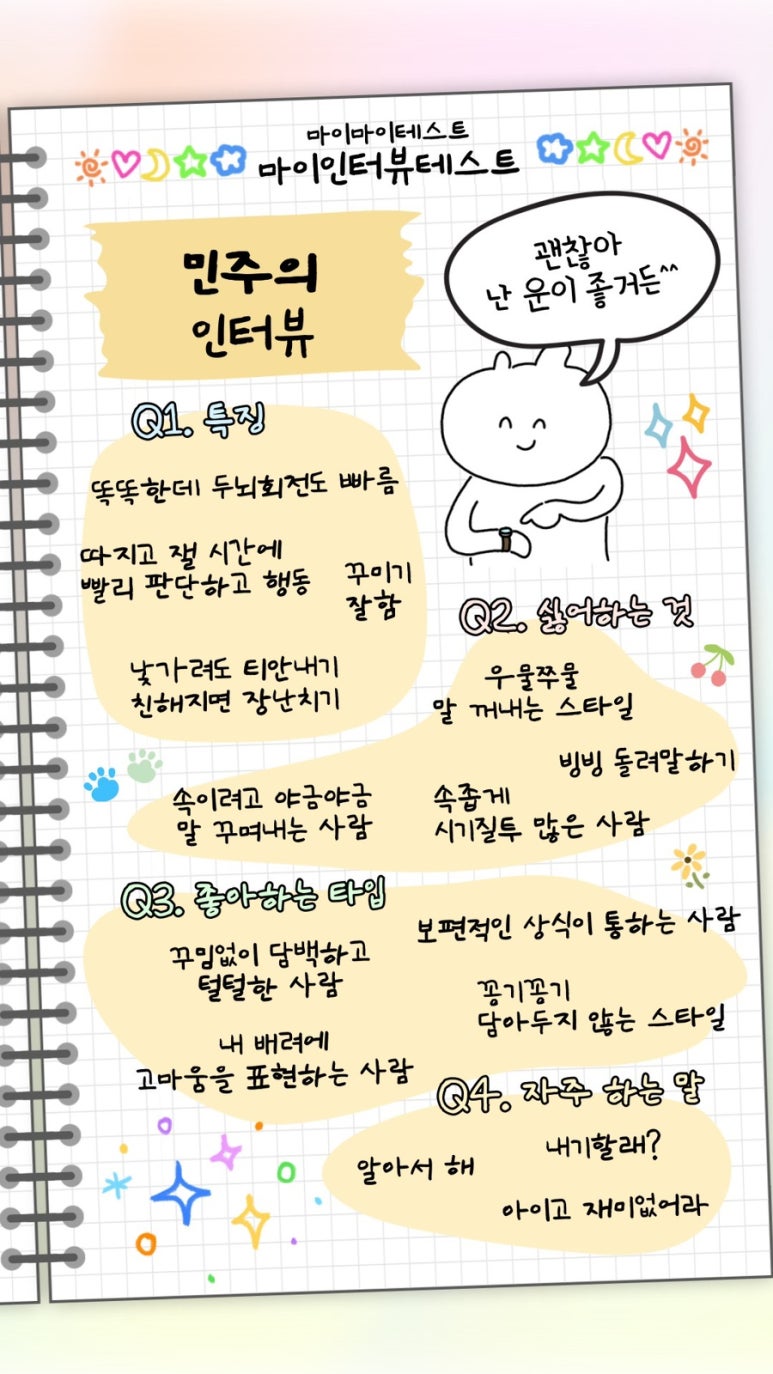 마이마이테스트
마이인터뷰테스트
민주의
인터뷰
괜찮아
난 운이 좋거든^^
Q1. 특징
똑똑한데 두뇌회전도 빠름
따지고 잴 시간에
빨리 판단하고 행동
꾸미기
잘함
낯가려도 티안내기
친해지면 장난치기
Q2. 싫어하는 것
우물쭈물
말 꺼내는 스타일
빙빙 돌려말하기
속이려고 야금야금
말 꾸며내는 사람
속좁게
시기질투 많은 사람
Q3. 좋아하는 타입
꾸밈없이 담백하고
털털한 사람
보편적인 상식이 통하는 사람
꽁기꽁기
담아두지 않는 스타일
내 배려에
고마움을 표현하는 사람
Q4. 자주 하는 말
알아서 해
내기할래?
아이고 재미없어라